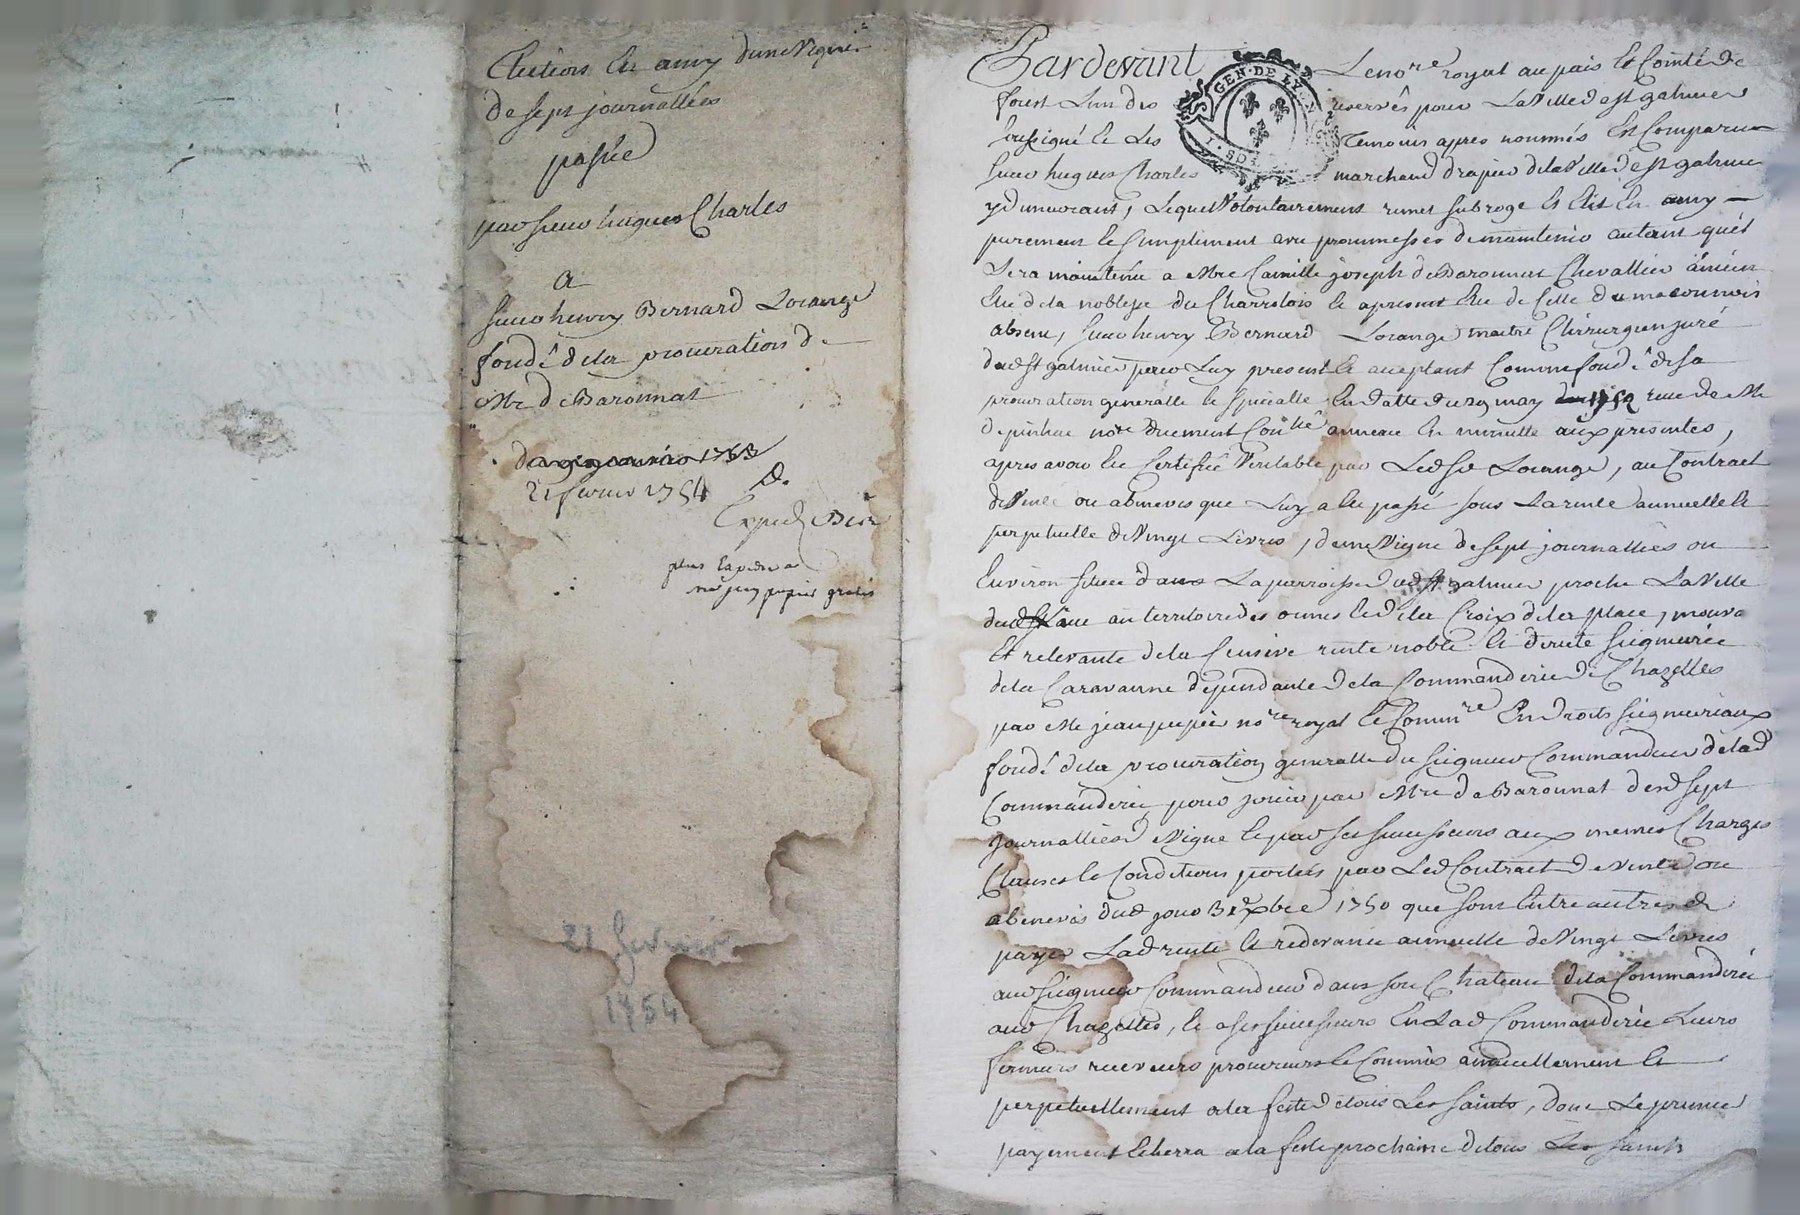 Election En amy dune Vigne
de sept journallées
passée
par sieur hugues Charles
a
sieur henry Bernard Lorange
fondé dela procuration de
Mre de Baronnat
21 fevrier 1754
Expedié
plus la
sur papier gratis
21 fevrier
1754
Pardevant Le nore royal au païs et Comté de
forest Lun des reservés pour La Ville de st galmier
soussigné et Les Temoins apres nommés Est Comparu
sieur hugues Charles marchand drapier dela Ville de st galmier
GEN·DE LY
y demeurant, Lequel Volontairement remet subroge et Elit En amy
purement et simplement avec promesses de maintenir autant quil
sera maintenu a Mre Camille joseph de Baronnat Chevallier ancien
Elu dela noblesse du Charrolois et apresent Elu de Celle du maconnois
absent, sieur henry Bernard Lorange maitre Chirurgien juré
dud st galmier pour Luy present et acceptant Comme fondé de sa
procuration generalle et specialle En datte du 29 may 1752 recue de Me
nore duement Conlle annexée En minutte aux presentes,
apres avoir Eté Certifiée Veritable par Led sr Lorange, au Contract
de Vente ou abenevis que Luy a Eté passé sous La rente annuelle et
perpetuelle de Vingt Livres, dune Vigne de sept journallées ou
Environ située dans La parroisse dud st galmier proche La Ville
dud Lieu au territoire des ormes et dela Croix dela place, mouvante
Et relevante dela Censive rente noble et directe seigneurie
dela Caravanne dependante dela Commanderie de Chazelles
par Me jean pupier nore royal et Commre En droits seigneuriaux
fondé dela procuration generalle du seigneur Commandeur delad
Commanderie, pour jouir par Mre de Baronnat desd sept
journallées de Vigne et par ses successeurs aux memes Charges
Clauses et Conditions portées par Led Contract de Vente ou
abenevis dud jour 31 Xbre 1750 que sont Entre autres de
payer Lad rente et redevance annuelle de Vingt Livres
aud seigneur Commandeur dans son Chateau dela Commanderie
aud Chazelles, et a ses successeurs En Lad Commanderie Leurs
fermiers receveurs procureurs et Commis annuellement et
perpetuellement a la feste de tous Les saints, dont Le premier
payement Echerra a la feste prochaine de tous Les saints